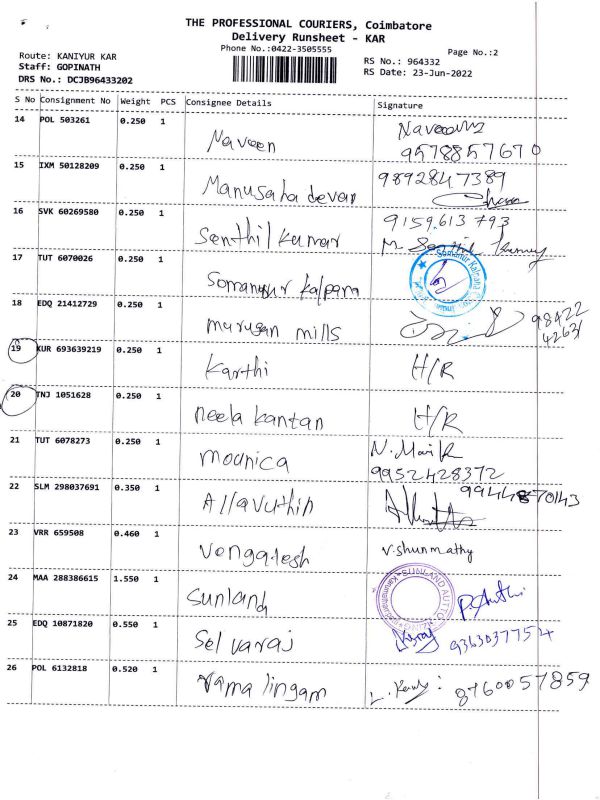 THE PROFESSIONAL COURIERS, Coimbatore
Delivery Runsheet - KAR
Phone No.:0422-3505555
Page No.:2
Route: KANIYUR KAR
Staff: GOPINATH
DRS No.: DCJB96433202
RS No.: 964332
RS Date: 23-Jun-2022
S No Consignment No Weight PCS Consignee Details Signature
14 POL 503261 0.250 1 Naveen
9578857670
15 IXM 50128209 0.250 1 Manusaha devan 9892847389
16 SVK 60269580 0.250 1 Senthil kumar 9159613793
M. Senthil
17 TUT 6070026 0.250 1 Somanur kalpana
18 EDQ 21412729 0.250 1 murugan mills 98422
4263
19 KUR 693639219 0.250 1 Karthi H/R
20 TNJ 1051628 0.250 1 neela kantan H/R
21 TUT 6078273 0.250 1 mounica
9952428372
22 SLM 298037691 0.350 1 Allavuthin
23 VRR 659508 0.460 1 vengatesh v.shunmathy
24 MAA 288386615 1.550 1 Sunland
25 EDQ 10871820 0.550 1 Selvaraj 9363037754
26 POL 6132818 0.520 1 ramalingam 8760057859